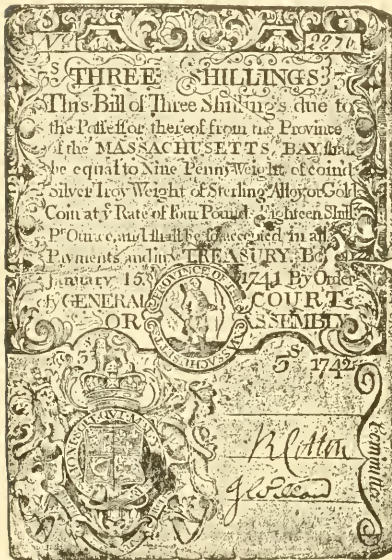 No 2270
3s THREE SHILLINGS 3s
This Bill of Three Shillings due to
the Possessor thereof from the Province
of the MASSACHUSETTS BAY shall
be equal to Nine Penny Weight of coind
Silver Troy Weight of Sterling Alloy or Gold
Coin at ye Rate of Four Pound Eighteen Shill
Pr Ounce, and shall be so accepted in all
Payments and in ye TREASURY. Bo
January 15. 1741 By Order
of GENERAL COURT
OR ASSEMBLY
PROVINCE OF THE MASSACHUSETTS
3s 1742
R Cotton
Committee